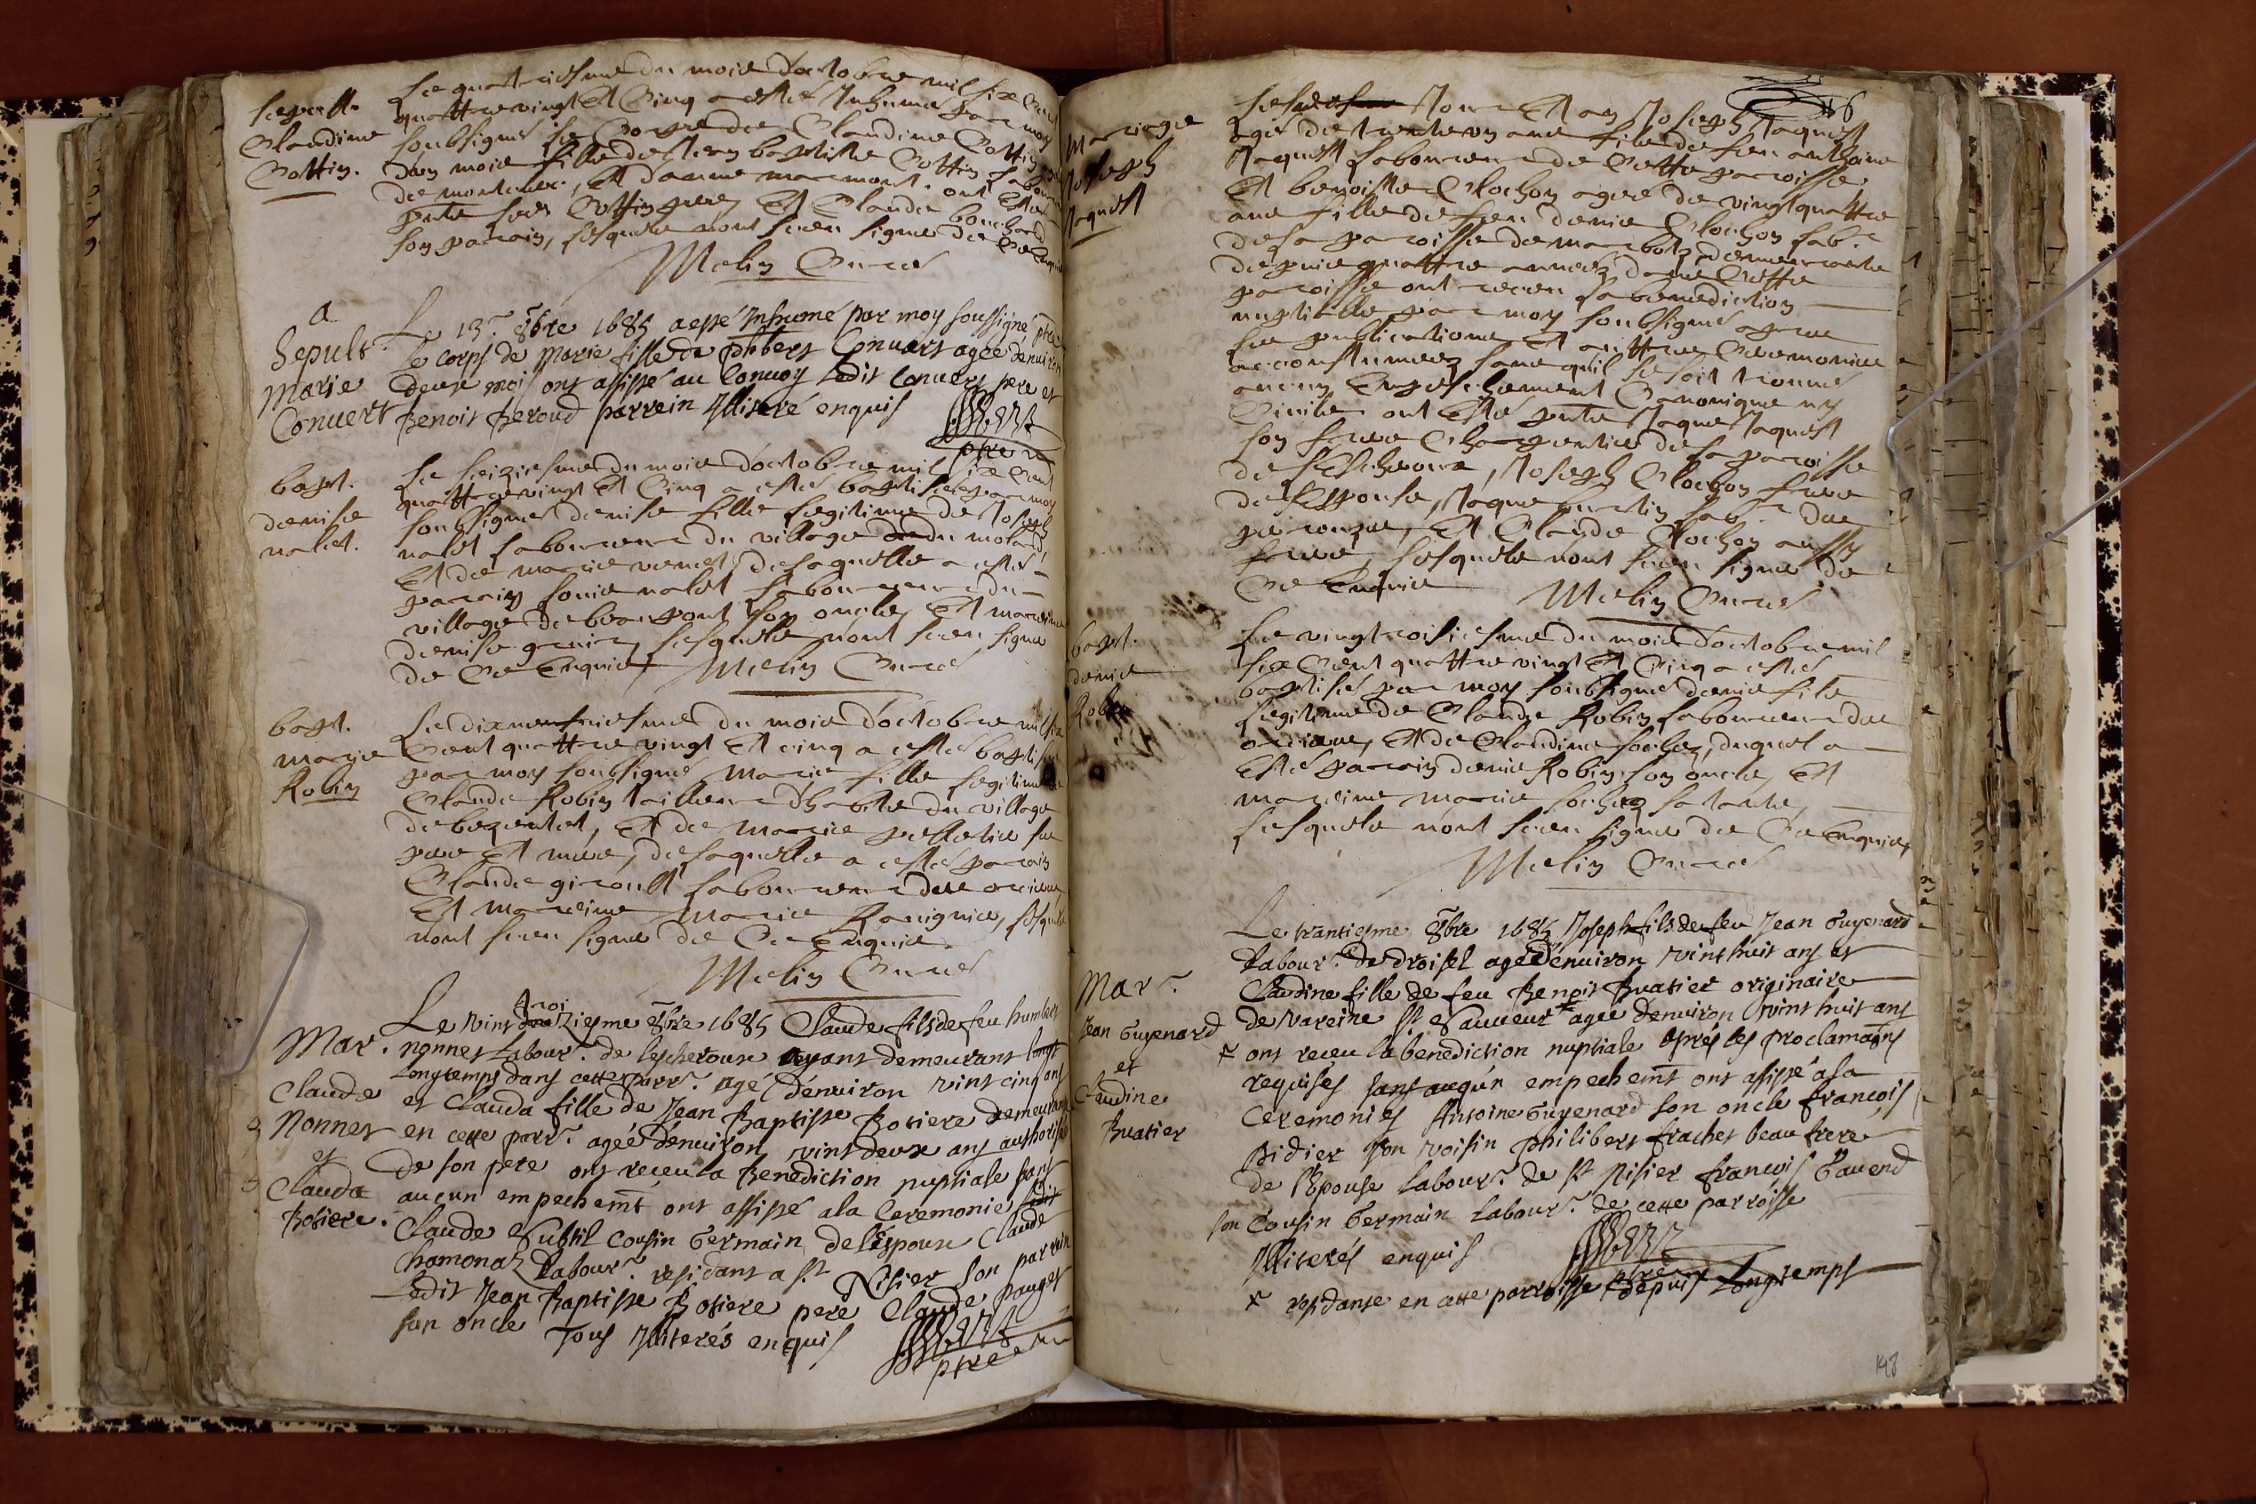 Sepult.
Claudine
Cottin.
Le quatriesme du mois d'octobre mil six cent
quattre vingt et cinq a esté inhumé par moy
soubsigné le corps de Claudine Cottin
d'un mois fille de Jean baptiste Cottin
de montcuer, et d'anne marmont. ont esté
pnts led. Cottin pere, et Claude bouchard
son parrain, lesquels n'ont sceu signer de ce enquis
Melin Curé
a
Sepult.
Marie
Convert
Le 13e. 8bre 1685 a esté Inhumé par moy soussigné ptre
le corps de Marie fille de phibert Convert agée denviron
deux moi ont assisté au Convoy Ledit Convert pere et
Benoit Beroud parrein Illiteré enquis
ptre
bapt.
denise
nalet.
Le seiziesme du mois d'octobre mil six cent
quattre vingt et cinq a esté baptisée par moy
soubsigné denise fille legitime de Joseph
nalet laboureur du village du molard,
Et de marie vernet, de laquelle a esté
parrain louis nalet laboureur du
village de beaupont son oncle, Et marreine
denise lesquels n'ont sceu signer
de ce enquis Melin Curé
bapt.
marie
Robin
Le dixneufviesme du mois d'octobre mil six
cent quattre vingt Et cinq a esté baptisée
par moy soubsigné Marie fille legitime de
Claude Robin tailleur d'habits du village
de bezentet, Et de Marie pelletier ses
pere Et mere, de laquelle a esté parrain
Claude giroult laboureur
Et marreine Marie Ravignier, lesquels
n'ont sceu signer de Ce Enquis
Melin Curé
Mar.
Claude
Nonnet
et
Clauda
Botiere.
Le vint troiziesme 8bre 1685 Claude fils de feu humbert
nonnet Labour. de lescheroux ayant demeurant
longtemps dans cette parr. agé d'enuiron vint cinq ans
et Clauda fille de Jean Baptiste Botiere demeurant
en cette parr. agée d'enuiron vint deux ans authorisée
de son pere ont receu la Benediction nuptiale sans
aucun empechemt ont assisté a la Ceremonie
Claude Subtil Cousin Germain de l'Espoux Claude
Chamonal Labour. residant a St. Nisier son parrein
Ledit Jean Baptiste Botiere pere Claude pauget
son oncle Tous Illiterés enquis
ptre
Mariage
Joseph
Jaquet
Lesusd. Jour Et an Joseph Jaquet
agé de trente un ans fils de feu anthoine
Jaquet laboureur de Cette paroisse
Et benoiste Clochon agée de vingt quattre
ans fille de feu denis Clochon lab.r
de la paroisse de marboz, demeurante
depuis quattre années dans Cette
paroisse ont receu la benediction
nuptialle par moy soubsigné apres
les publications Et autres Ceremonies
accoustumées sans qu'il se soit trouvé
aucun Empeschement Canonique ny
Civile. ont Esté pnts Jaque Jaquet
son frere Charpentier de la paroisse
de leScheroux, Joseph Clochon frere
de l'Epouse, Jaque lab.r
Et Claude Clochon aussy
frere, lesquels n'ont sceu signer de
Ce Enquis Melin Curé
bapt.
denis
Robin
Le vingtroisiesme du mois d'octobre mil
six Cent quattre vingt Et Cinq a esté
baptisé par moy soubsigné denis fils
legitime de Claude Robin laboureur
Et de Claudine sochay, duquel a
Esté parrain denis Robin son oncle, Et
marreine marie sochay sa tante,
lesquels n'ont sceu signer de Ce Enquis,
Melin Curé
Mar.
Jean Guyenard
et
Claudine
Buatier
Le trantiesme 8bre 1685 Joseph fils de feu Jean Guyenard
Labour. de droisel agé d'enuiron vint huit ans et
Claudine fille de feu Benoit Buatier originaire
de Vareine St. Sauueur * agée denuiron vint huit ans
ont receu la benediction nuptiale aprés les proclamaons
requises sans aucun empechemt ont assisté a la
Ceremonies Antoine Guyenard son oncle François
Didier son voisin philibert frachet beau frere
de l'Epouse labour. de St Nisier françois
son Cousin Germain labour. de cette parroisse
Illiterés enquis
ptre
* residante en cette parroisse depuis Longtemps
148